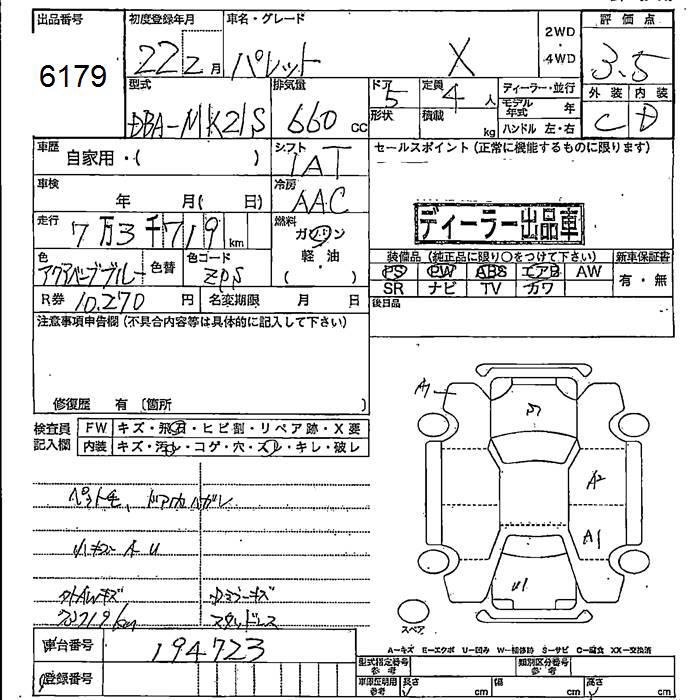 出品番号 初度登録年月 車名・グレード 2WD・4WD 評価点
6179 22 2月 パレット X 3.5
型式 排気量 ドア 5 定員 4人 ディーラー・並行 外装 内装
DBA-MK21S 660cc 形状 積載 kg モデル年式 年 C D
ハンドル 左・右
車歴 自家用・( ) シフト IAT セールスポイント(正常に機能するものに限ります)
車検 年 月( 日) 冷房 AAC
走行 7万3千719km 燃料 ガソリン 軽・油 ( ) ディーラー出品車
色 色替 色コード ZPS 装備品(純正品に限り○をつけて下さい) 新車保証書
PS PW ABS エアB AW 有・無
SR ナビ TV カワ
R券 10,270円 名変期限 月 日 後日品
注意事項申告欄(不具合内容等は具体的に記入して下さい)
修復歴 有 〔箇所 〕
検査員記入欄 FW キズ・飛石・ヒビ割・リペア跡・X要
内装 キズ・汚れ・コゲ・穴・スレ・キレ・破レ
ペット毛、ドア内ハガレ
小キズ A U
外AWキズ
73719km スタッドレス
A1
A2
A1
U1
スペア
A-キズ E-エクボ U-凹み W-補修跡 S-サビ C-腐食 XX-交換済
車台番号 194723 型式指定番号 参考 類別区分番号 参考
登録番号 車庫証明用 参考 長さ cm 幅 cm 高さ cm